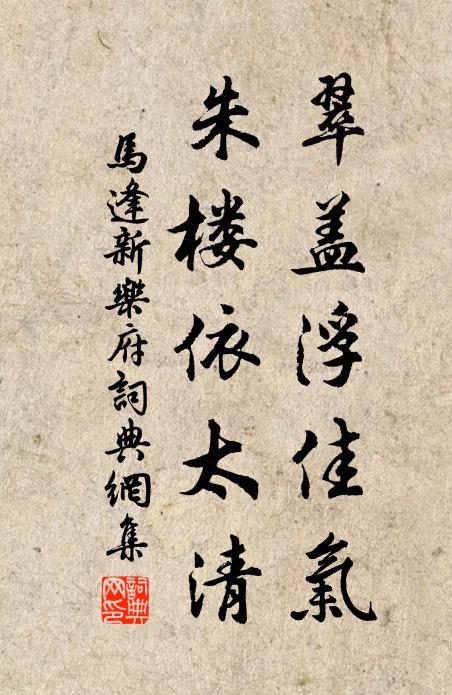 翠盖浮佳氣
朱楼依太清
馬逢新樂府詞典網集
詞典网印